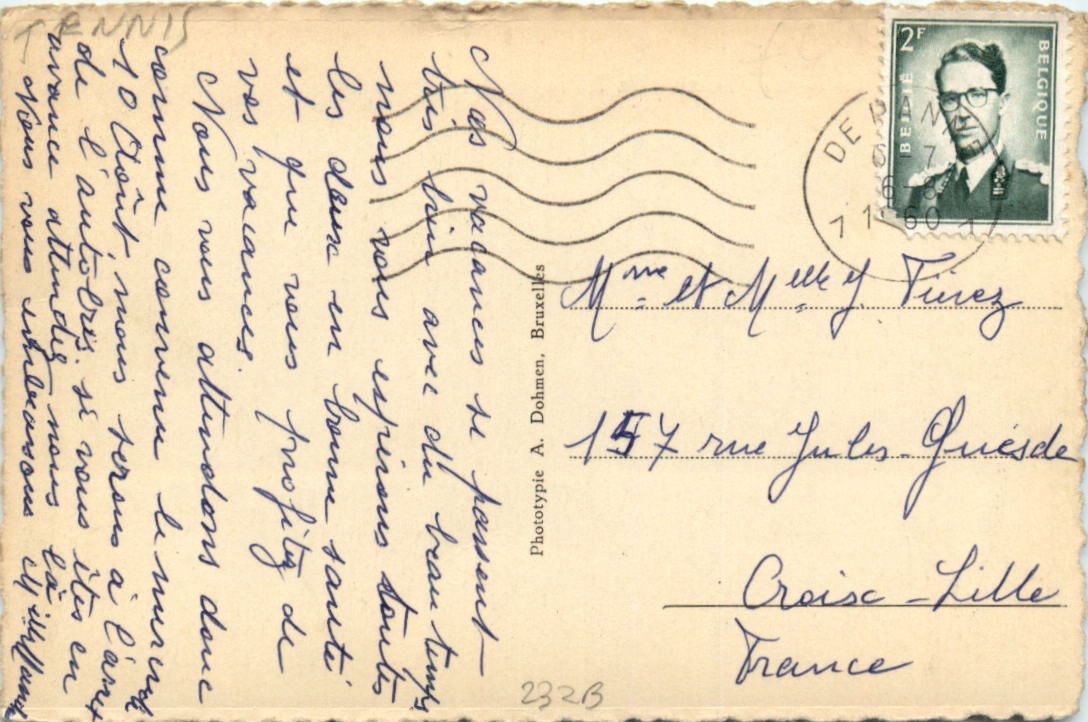 TENNIS
Nos vacances se passent
très bien avec du beau temps
nous vous espérons toutes
les deux en bonne santé
et que vous profitez de
vos vacances.
Nous vous attendons donc
comme convenu le mercredi
10 Août, nous serons à l'arrêt
de l'autobus. si vous êtes en
avance attendez nous là
Nous vous embrassons
Phototypie A. Dohmen, Bruxelles
2F
BELGIË
BELGIQUE
DE PANNE
7
6-8
1960
1
Mme et Melle J.
157 rue Jules-Guesde
Croix-Lille
France
232B